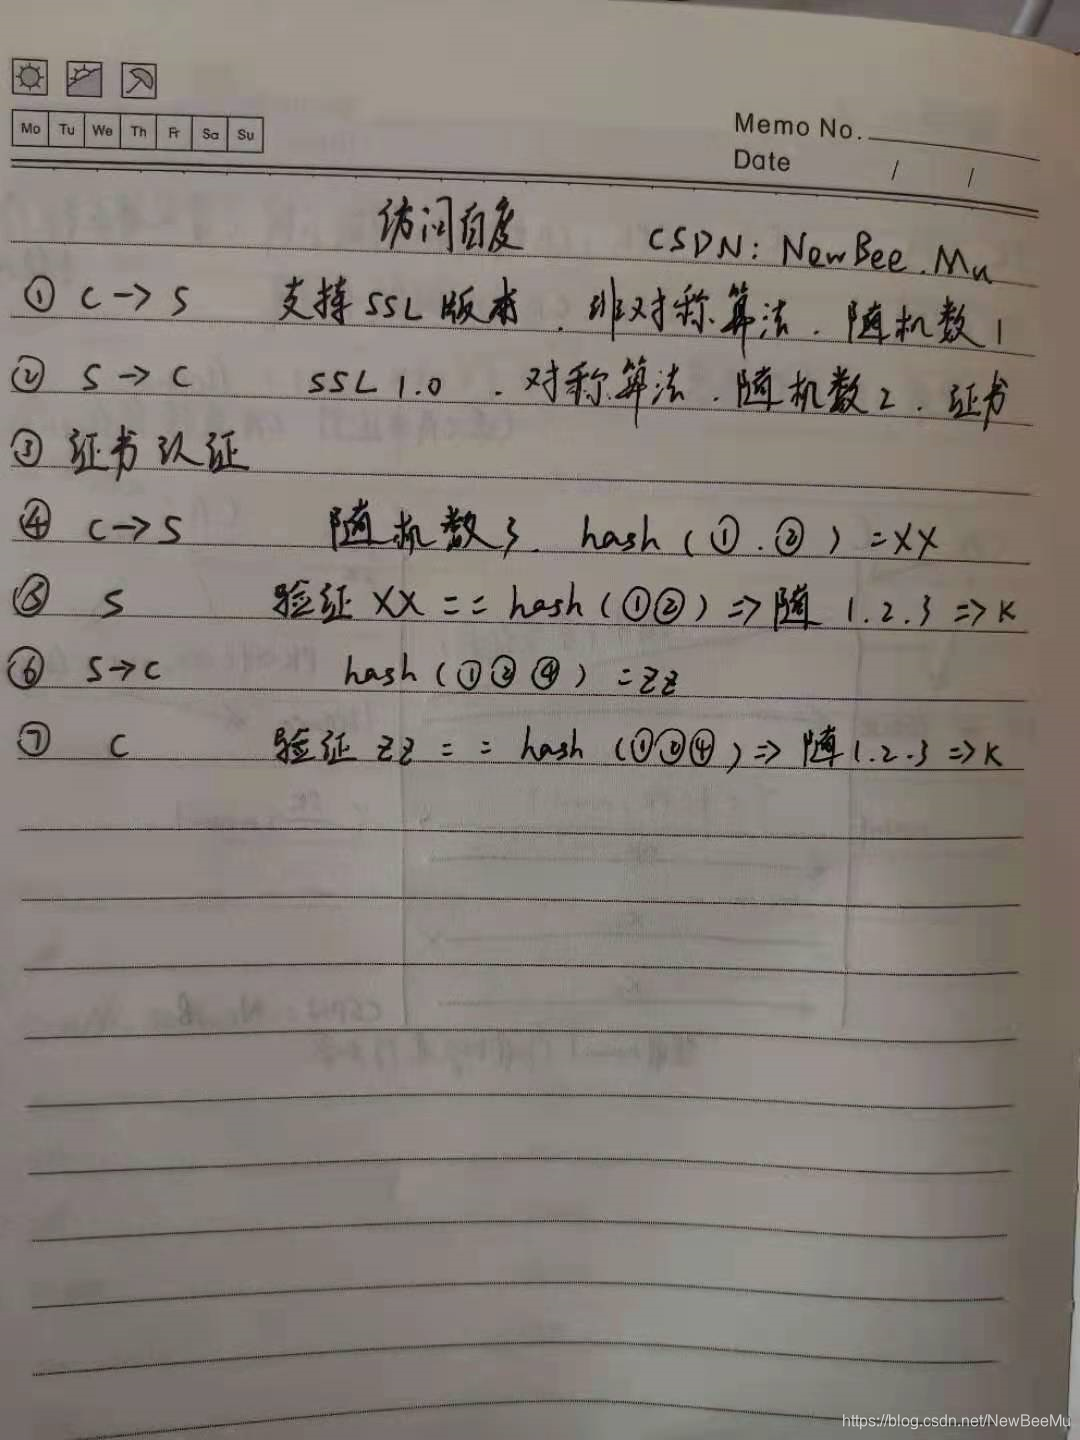 Mo Tu We Th Fr Sa Su
Memo No.
Date / /
访问百度 CSDN: NewBee.Mu
① C → S 支持 SSL 版本 . 非对称算法 . 随机数1
② S → C SSL 1.0 . 对称算法 . 随机数2 . 证书
③ 证书认证
④ C → S 随机数3. hash ( ① . ② ) = XX
⑤ S 验证 XX == hash ( ①② ) => 随 1.2.3 => K
⑥ S → C hash ( ①②④ ) = ZZ
⑦ C 验证 ZZ == hash ( ①②④ ) => 随 1.2.3 => K
https://blog.csdn.net/NewBeeMu